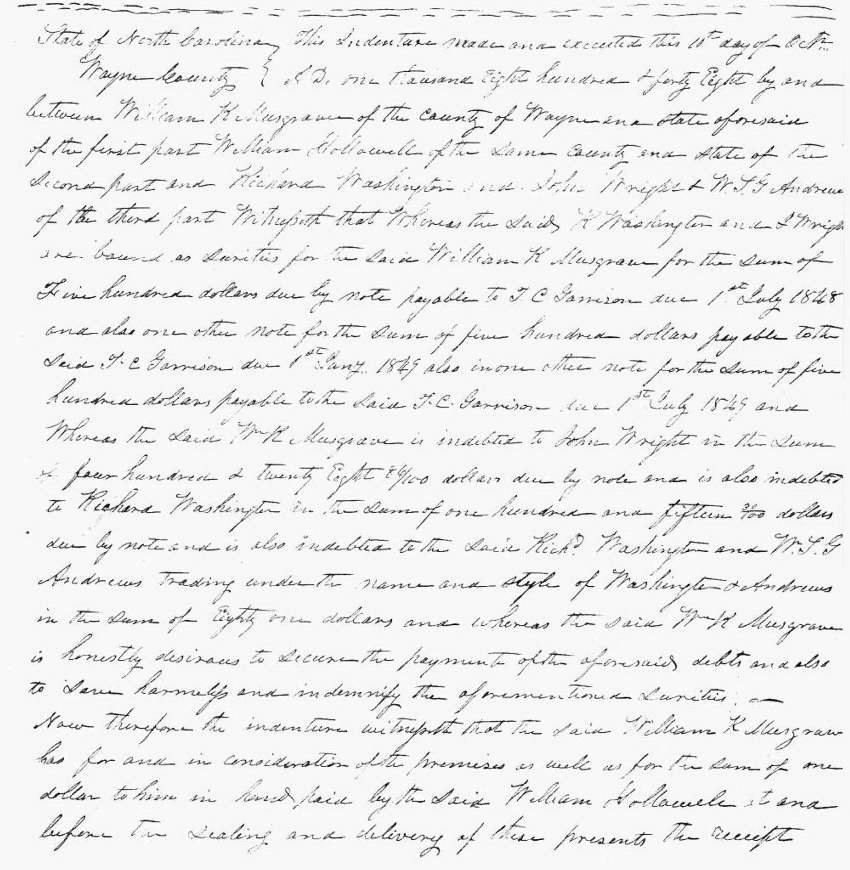 State of North Carolina } This Indenture made and executed this 10th day of Octr.
Wayne County } A.D. one thousand Eight hundred & forty Eight by and
between William K Musgrave of the County of Wayne and state aforesaid
of the first part William Hollowell of the Same County and State of the
Second part and Richard Washington and John Wright & W.S.G Andrews
of the third part Witnesseth that Whereas the Said R Washington and J Wright
are bound as Surities for the Said William K Musgrave for the Sum of
Five hundred dollars due by note payable to T C Garrison due 1st July 1848
and also one other note for the Sum of five hundred dollars payable to the
Said T. C Garrison due 1st Jany. 1849 also in one other note for the Sum of five
hundred dollars payable to the Said T. C. Garrison due 1st July 1849 and
Whereas the Said Wm K Musgrave is indebted to John Wright in the Sum
of four hundred & twenty Eight 86/100 dollars due by note and is also indebted
to Richard Washington in the Sum of one hundred and fifteen /100 dollars
due by note and is also indebted to the Said Richd. Washington and W. S. G
Andrews trading under the name and style of Washington & Andrews
in the Sum of Eighty one dollars and whereas the Said Wm K Musgrave
is honestly desirous to Secure the payment of the aforesaid debts and also
to Save harmless and indemnify the aforementioned Surities. —
Now therefore the indenture witnesseth that the Said William K Musgrave
has for and in consideration of the premises as well as for the Sum of one
dollar to him in hand paid by the Said William Hollowell at and
before the Sealing and delivery of these presents the receipt